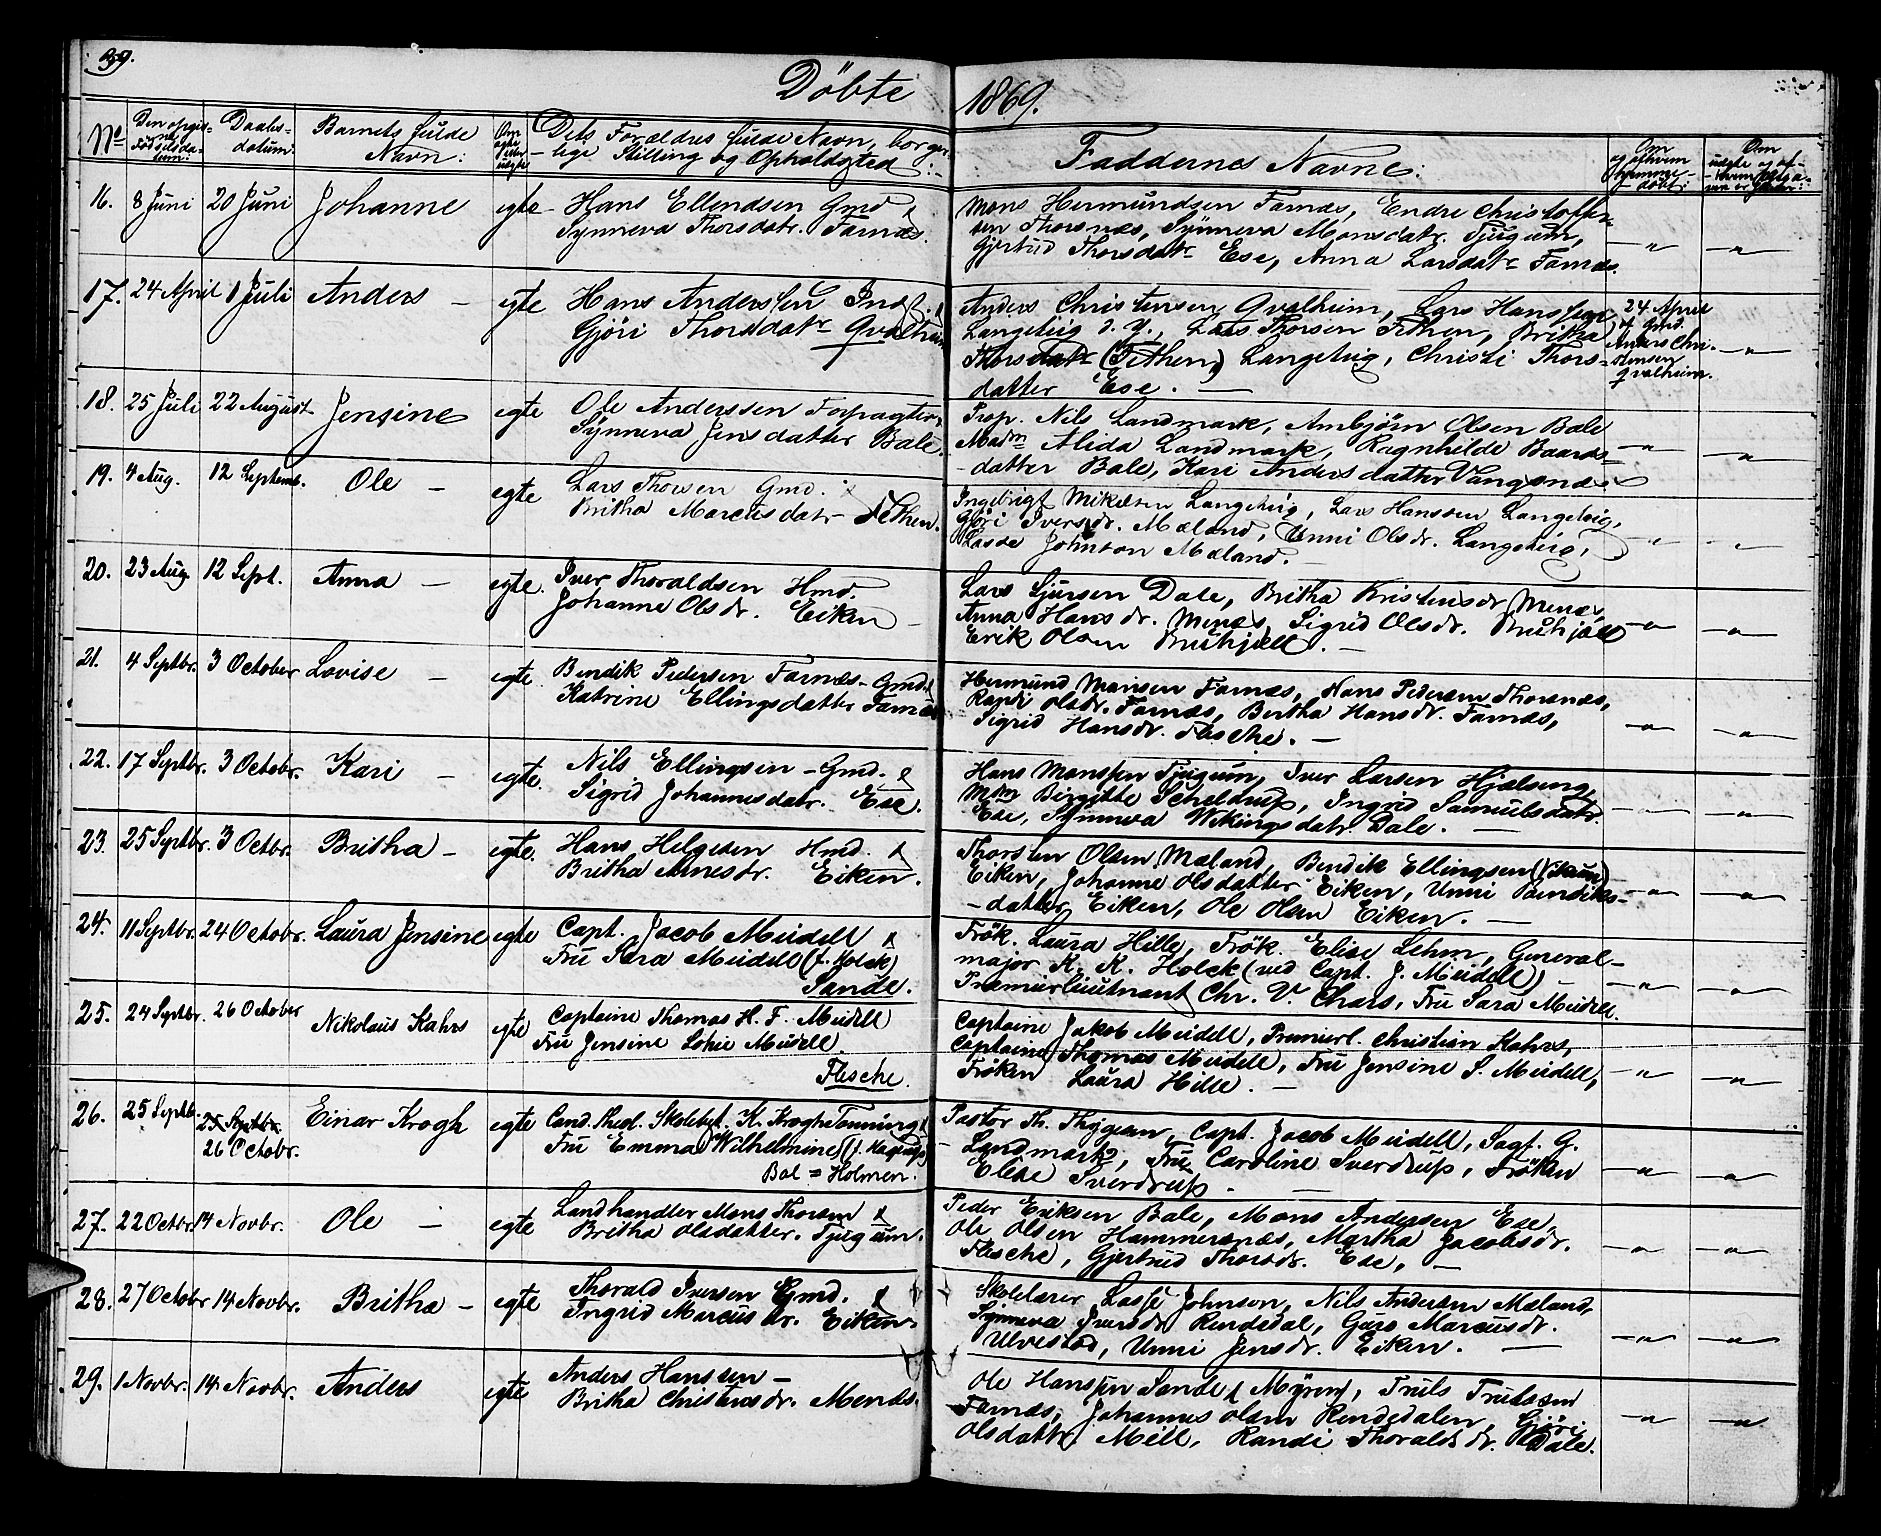 39.
Döbte 1869.
No
Den opgivne Födselsdatum:
Daabsdatum:
Barnets fulde Navn:
Om ægte eller uægte
Dets Forældres fulde Navn, borgerlige Stilling og Opholdsted:
Faddernes Navne:
Om og af hvem hjemmedöbt:
16. 8 Juni 20 Juni Johanne egte Hans Ellendsen Gmd &
Synneva Thorsdatr. Farnæs.
Mons Hermundsen Farnæs, Endre Christoffer-
sen Thorsnæs, Synneva Monsdatr. Tjugum,
Gjertrud Thorsdatr Ese, Anna Larsdatr Farnæs.
— " — — " —
17. 24 April 1 Juli Anders — egte Hans Anderssen Ind. &
Gjöri Thorsdatr Qvalheim
Anders Christensen Qvalheim, Lars Hanssen
Langeteig d. Y., Lars Thorsen Fethen, Britha
Thorsdatr (Fethen) Langeteig, Christi Thors-
datter Ese. —
24 April
af Gmd.
Anders Chri-
stensen
Qvalheim.
— " —
18. 25 Juli 22 August Jensine egte Ole Anderssen Forpagter &
Synneva Jensdatter Bale.
Prop. Nils Landmark, Arnbjörn Olsen Bale
Madm Alida Landmark, Ragnhilde Baards-
datter Bale, Kari Andersdatter Vangsnæs
— " — — " —
19. 4 Aug. 12 Septemb. Ole — egte Lars Thorsen Gmd. &
Britha Marcusdatr Fethen.
Ingebrigt Mikelsen Langeteig, Lars Hanssen Langeteig,
Gjöri Iversdr. Mæland, Unni Olsdr. Langeteig,
Lasse Johnson Mæland. —
— " — — " —
20. 23 Aug. 12 Sept. Anna — egte. Iver Thoraldsen Hmd.
Johanne Olsdr. Eiken —
Lars Sjursen Dale, Britha Kristensdr Menæs,
Anna Hansdr. Menæs, Sigrid Olsdr.
Erik Olsen
— " — — " —
21. 4 Septbr. 3 October Lovise — egte. Bendik Pedersen Farnæs - Gmd. &
Katrine Ellingsdatter Farnæs
Hermund Monsen Farnæs, Hans Pedersen Thorsnæs,
Randi Olsdr. Farnæs, Britha Hansdr. Farnæs,
Sigrid Hansdr. Flesche. —
— " — — " —
22. 17 Septbr. 3 Octobr. Kari — egte. Nils Ellingsen - Gmd. &
Sigrid Johannesdatr. Ese.
Hans Monssen Tjugum, Iver Larsen Hjelseng,
Mdm Birgitte Scheldrup, Ingrid Samuelsdatr.
Ese, Synneva Wikingsdatr. Dale. —
— " — — " —
23. 25 Septbr. 3 Octbr. Britha — egte. Hans Helgesen Hmd. &
Britha Arnesdr. Eiken.
Thorsten Olsen Mæland, Bendik Ellingsen
Eiken, Johanne Olsdatter Eiken, Unni Bendiks-
-datter Eiken, Ole Olsen Eiken. —
— " — — " —
24. 11 Septbr. 24 Octobr. Laura Jensine egte Capt. Jacob Meidell &
Fru Sara Meidell (f. Holck)
Sande.
Frök. Laura Hille, Frök. Elise Lehm, General-
major K. K. Holck (ved Capt. J. Meidell)
Premierlieutnant Chr. V. Chars, Fru Sara Meidell.
— " — — " —
25. 24 Septbr. 26 October Nikolaus Kahrs egte Captaine Thomas H. F. Meidell
Fru Jensine Lokie Meidell
Flesche.
Captaine Jakob Meidell, Premierl. Christian Kahrs,
Captaine Thomas Meidell, Fru Jensine S. Meidell,
Fröken Laura Hille. —
— " — — " —
26. 25 Septb. 25 Septbr.
26 Octobr. Einar Krogh egte Cand. Theol. Skolebst. K. Krogh Tonning &
Fru Emma Wilhelmine
Bal = Holmen.
Pastor Th. Thygesen, Capt. Jacob Meidell, Sagf. G.
Landmark, Fru Caroline Sverdrup, Fröken
Elise Sverdrup. —
— " — — " —
27. 22 Octbr 14 Novbr. Ole — egte Landhandler Mons Thorsen &
Britha Olsdatter. Tjugum.
Peder Eriksen Bale, Mons Andersen Ese,
Ole Olsen Hammersnæs, Martha Jacobsdr.
Flesche, Gjertrud Thorsdr. Ese, —
— " — — " —
28. 27 Octobr 14 Novbr. Britha — egte Thorald Iversen Gmd. &
Ingrid Marcusdr. Eiken.
Skolelærer Lasse Johnson, Nils Andersen Mæland,
Synneva Iversdr Rendedal, Guro Marcusdr.
Ulvestad, Unni Jensdr. Eiken. —
— " — — " —
29. 1 Novbr. 14 Novbr. Anders egte Anders Hanssen —
Britha Christensdr. Menæs.
Ole Hanssen Sande Myren, Truls Trulssen
Farnæs, Johannes Olsen Rendedalen, Gjöri
Olsdatter Mell, Randi Thoraldsdr. Dale.
— " — — " —